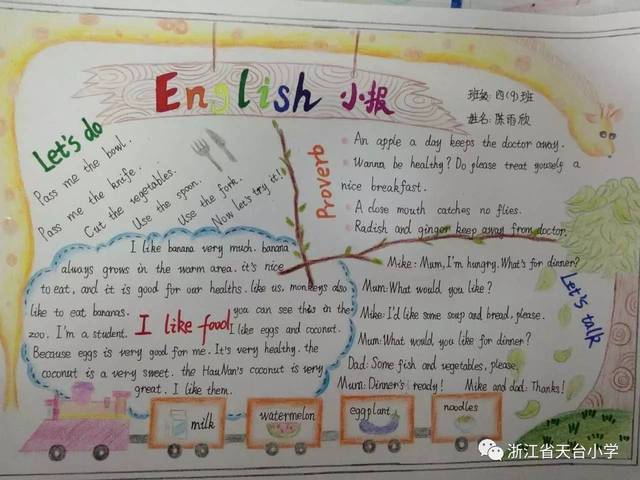 English 小报
班级: 四(9)班
姓名: 陈雨欣
Let's do
Pass me the bowl.
Pass me the knife.
Cut the vegetables.
Use the spoon.
Use the fork.
Now let's try it!
Proverb
An apple a day keeps the doctor away.
Wanna be healthy? Do please treat youself a
nice breakfast.
A close mouth catches no flies.
Radish and ginger keep away from doctor.
I like banana very much. banana
always grows in the warm area. it's nice
to eat, and it is good for our healths. like us, monkeys also
like to eat bananas.
you can see this in the
zoo. I'm a student.
I like food
I like eggs and coconut.
Because eggs is very good for me. It's very healthy. the
coconut is a very sweet. the HaiNan's coconut is very
great. I like them.
Let's talk
Mike: Mum, I'm hungry. What's for dinner?
Mum: What would you like?
Mike: I'd like some soup and bread, please.
Mum: What would you like for dinner?
Dad: Some fish and vegetables, please.
Mum: Dinner's ready! Mike and dad: Thanks!
milk
watermelon
eggplant
noodles
浙江省天台小学